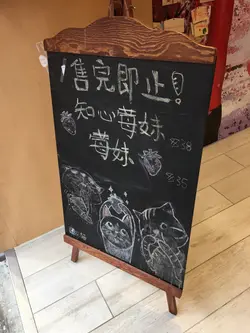 ！售完即止！
知心莓妹 $38
莓妹 $35